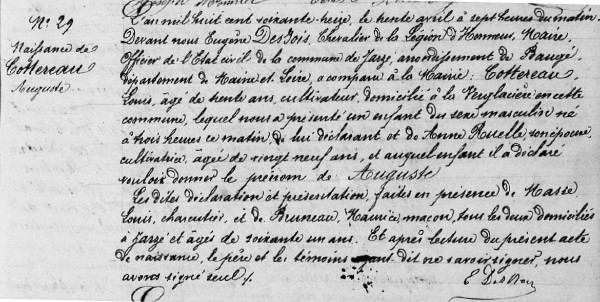 N° 29
Naissance de
Cottereau
Auguste
L'an mil huit cent soixante-seize, le trente avril à sept heures du matin.
Devant nous Eugène Des Bois, Chevalier de la Légion d'Honneur, Maire,
Officier de l'Etat civil de la commune de Jarzé, arrondissement de Baugé,
département de Maine et Loire, a comparu à la Mairie : Cottereau
Louis, âgé de trente ans, cultivateur, domicilié à la en cette
commune, lequel nous a présenté un enfant du sexe masculin né
à trois heures ce matin, de lui déclarant et de Anne Ruelle, son épouse,
cultivatrice, âgée de vingt neuf ans, et auquel enfant il a déclaré
vouloir donner le prénom de Auguste
Les dites déclaration et présentation, faites en présence de Masse
Louis, charcutier, et de Bruneau, Maurice, maçon, tous les deux domiciliés
à Jarzé et âgés de soixante un ans. Et après lecture du présent acte
de naissance, le père et les témoins ayant dit ne savoir signer, nous
avons signé seul.
E. Des Bois